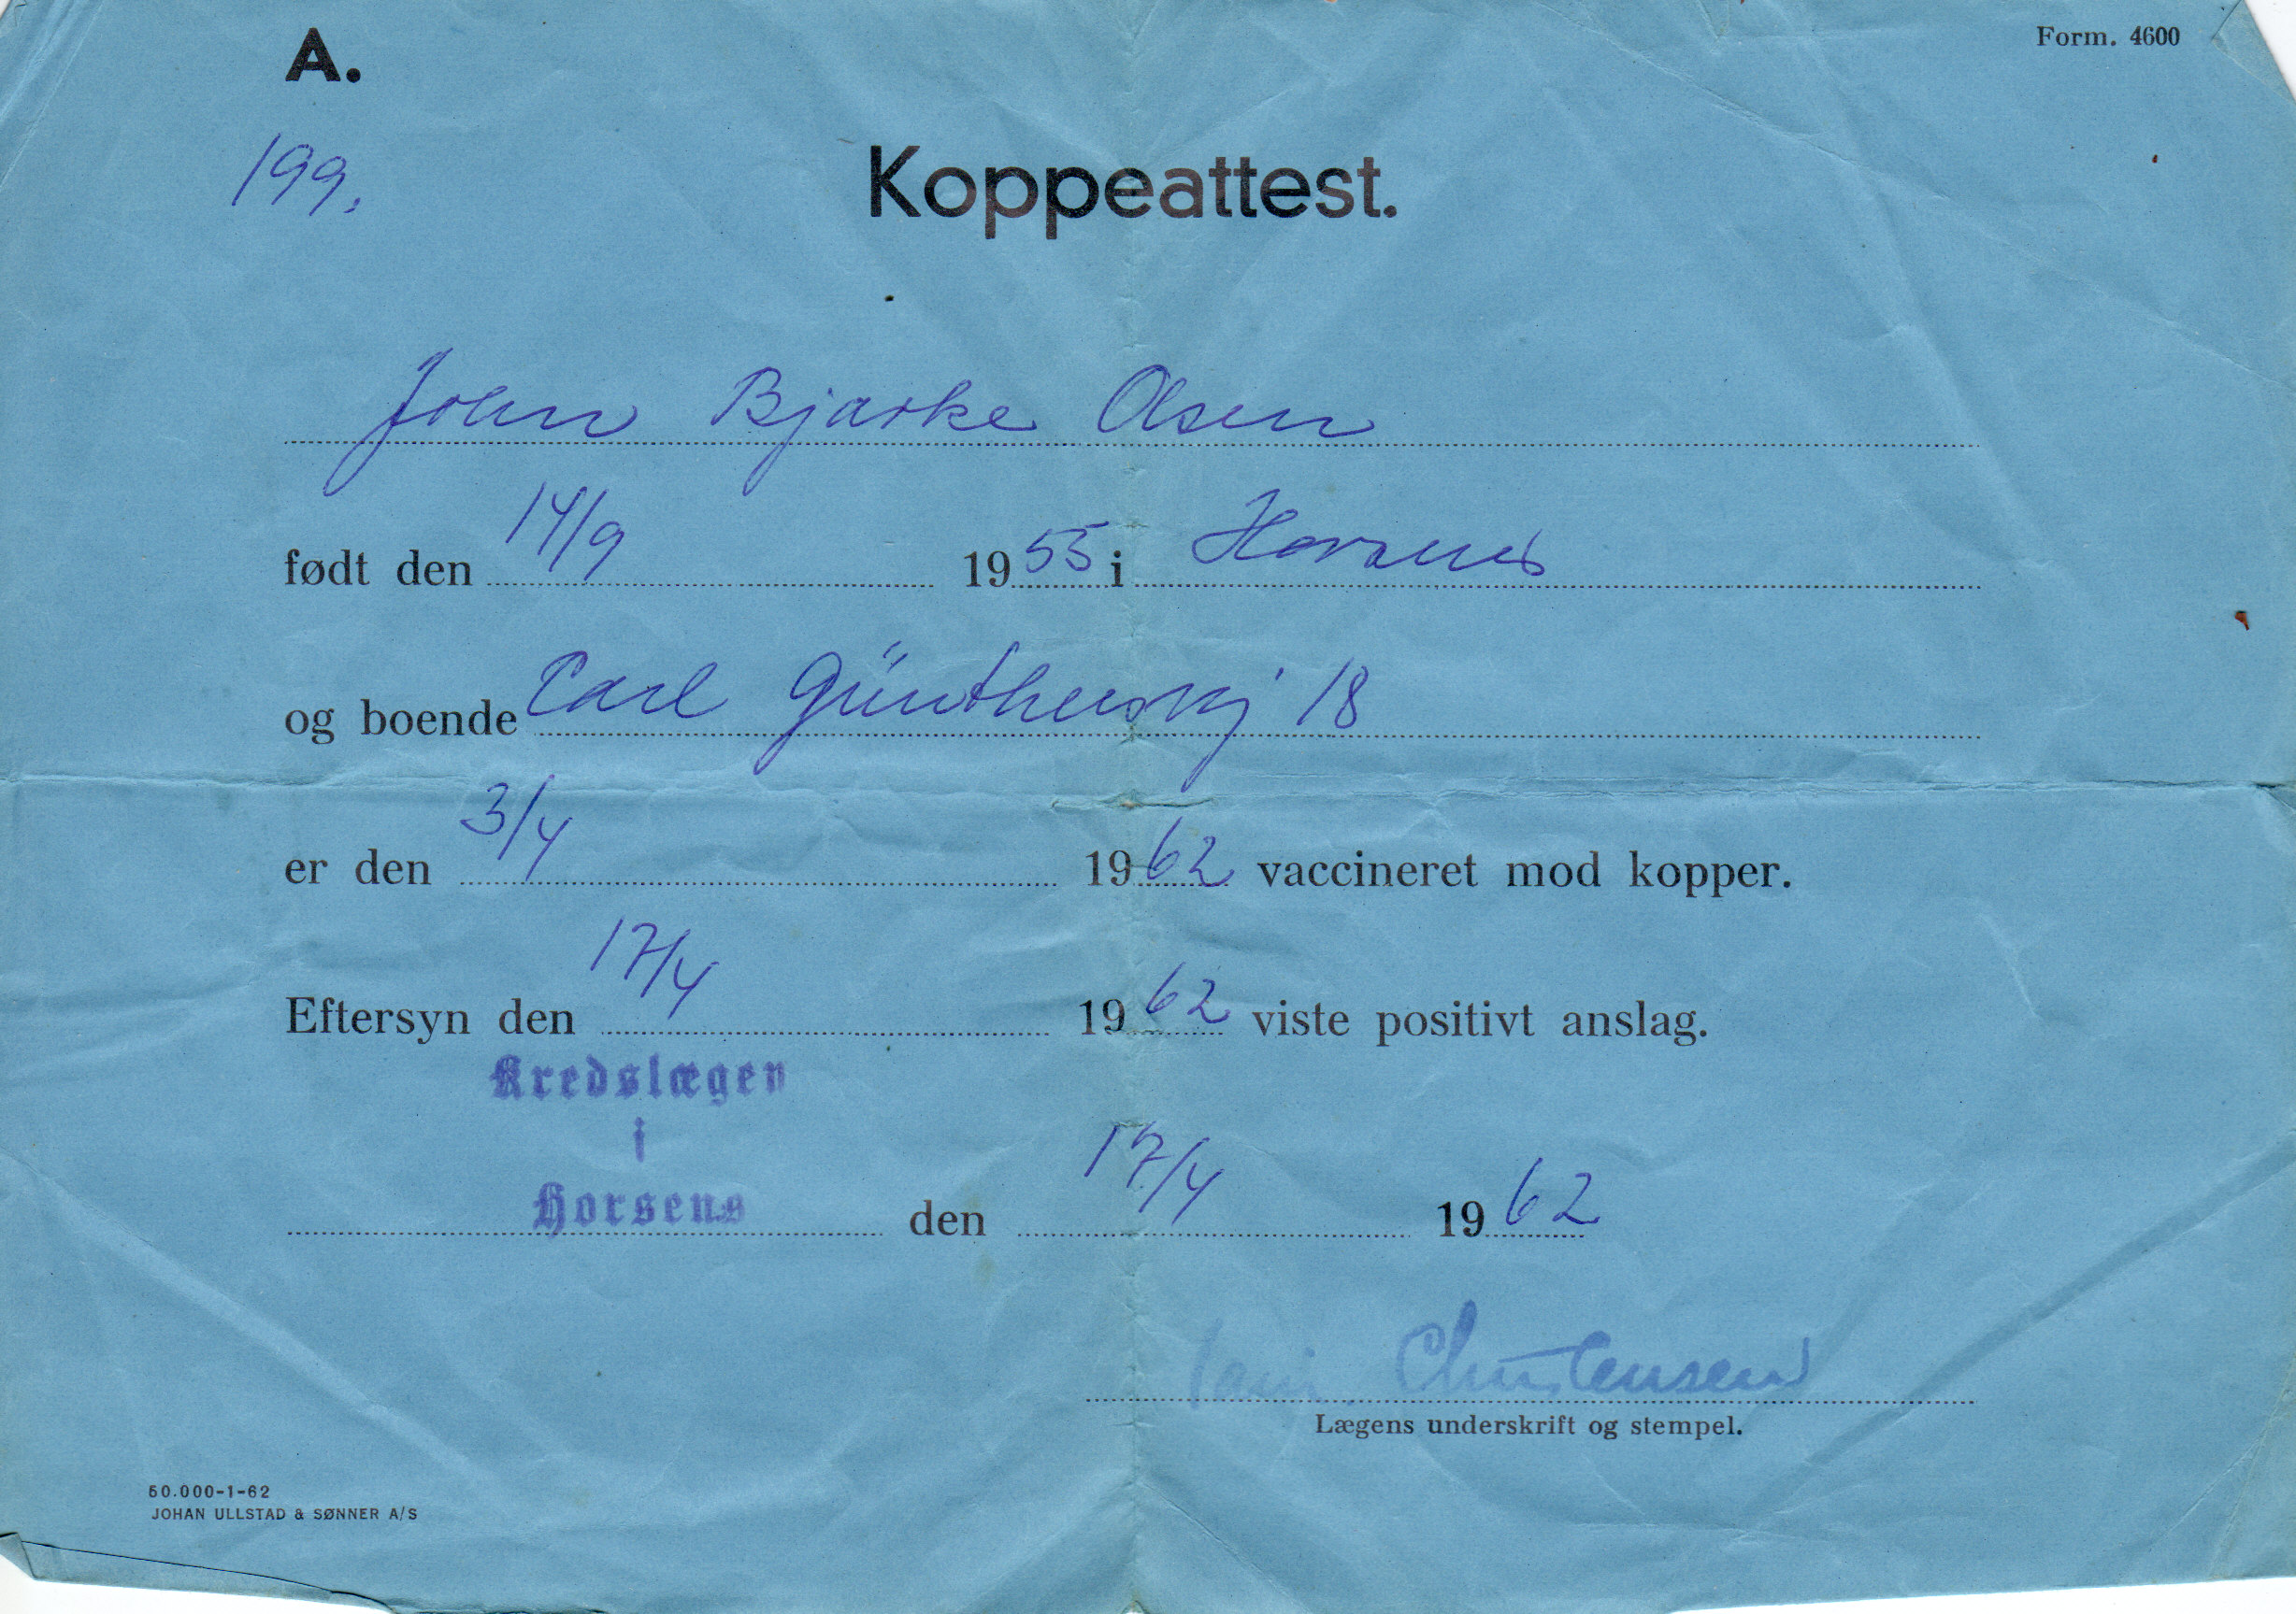 A.
Form. 4600
199.
Koppeattest.
John Bjarke Olsen
født den 14/9 1955 i Horsens
og boende Carl Günthersvj 18
er den 3/4 1962 vaccineret mod kopper.
Eftersyn den 17/4 1962 viste positivt anslag.
Kredslægen
i
Horsens den 17/4 1962
Christensen
Lægens underskrift og stempel.
50.000-1-62
JOHAN ULLSTAD & SØNNER A/S